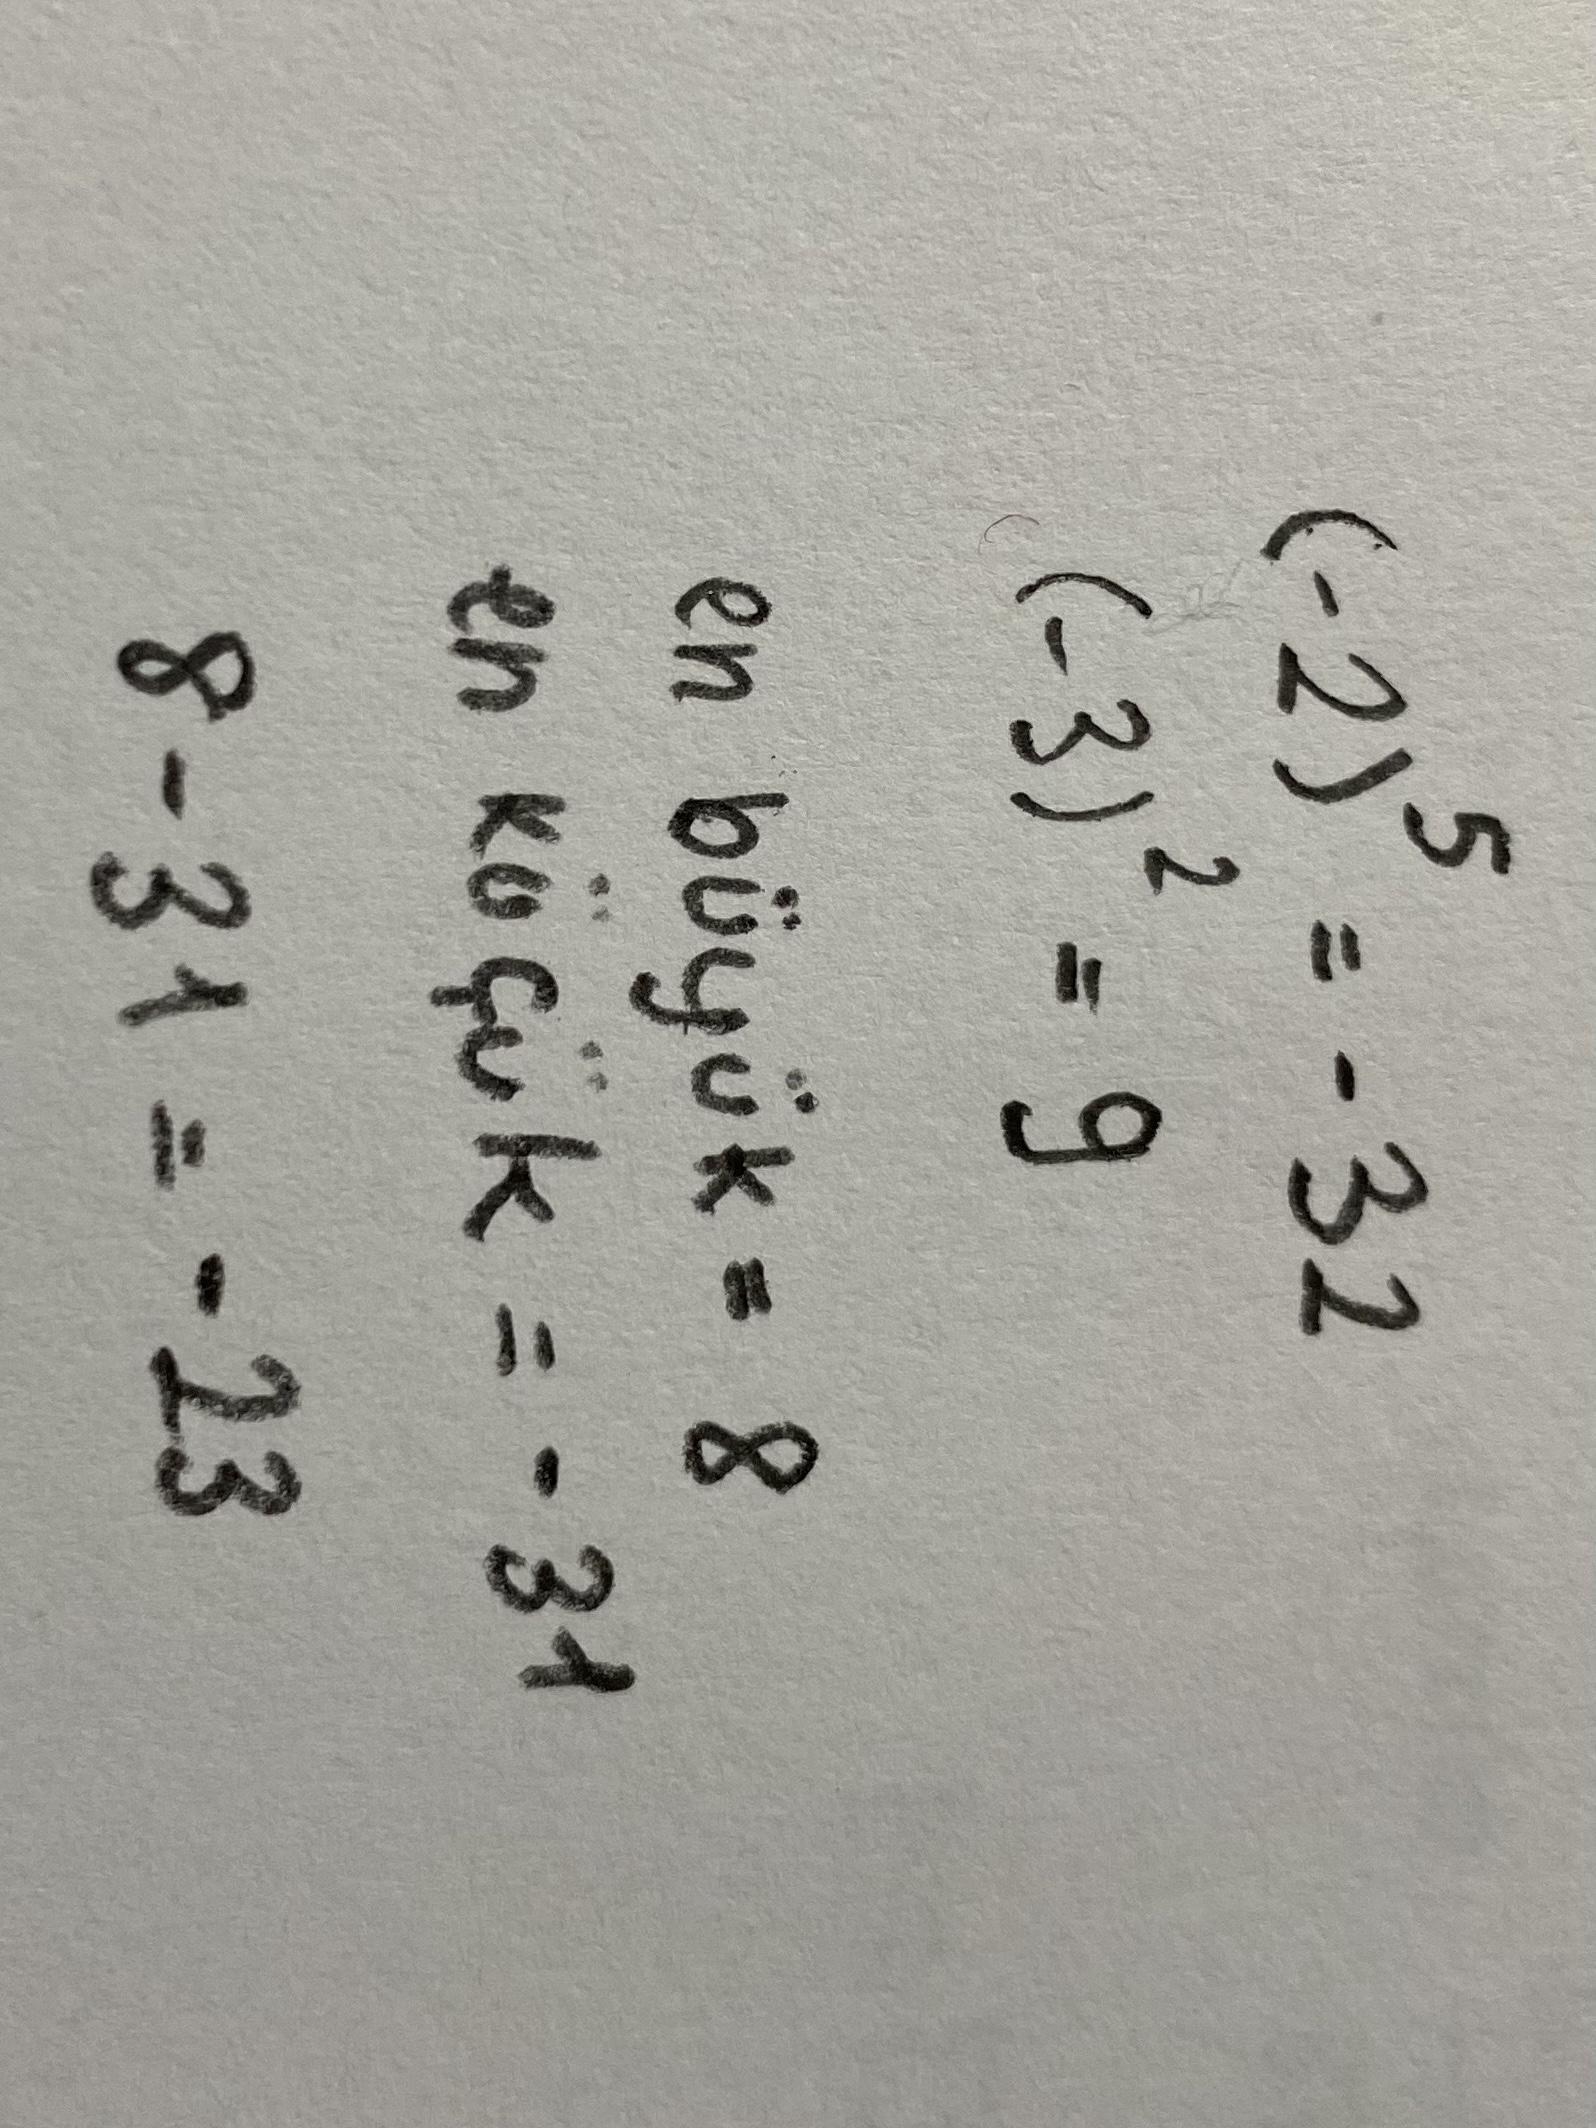 (-2)⁵ = -32
(-3)² = 9
en büyük = 8
en küçük = -31
8-31 = -23